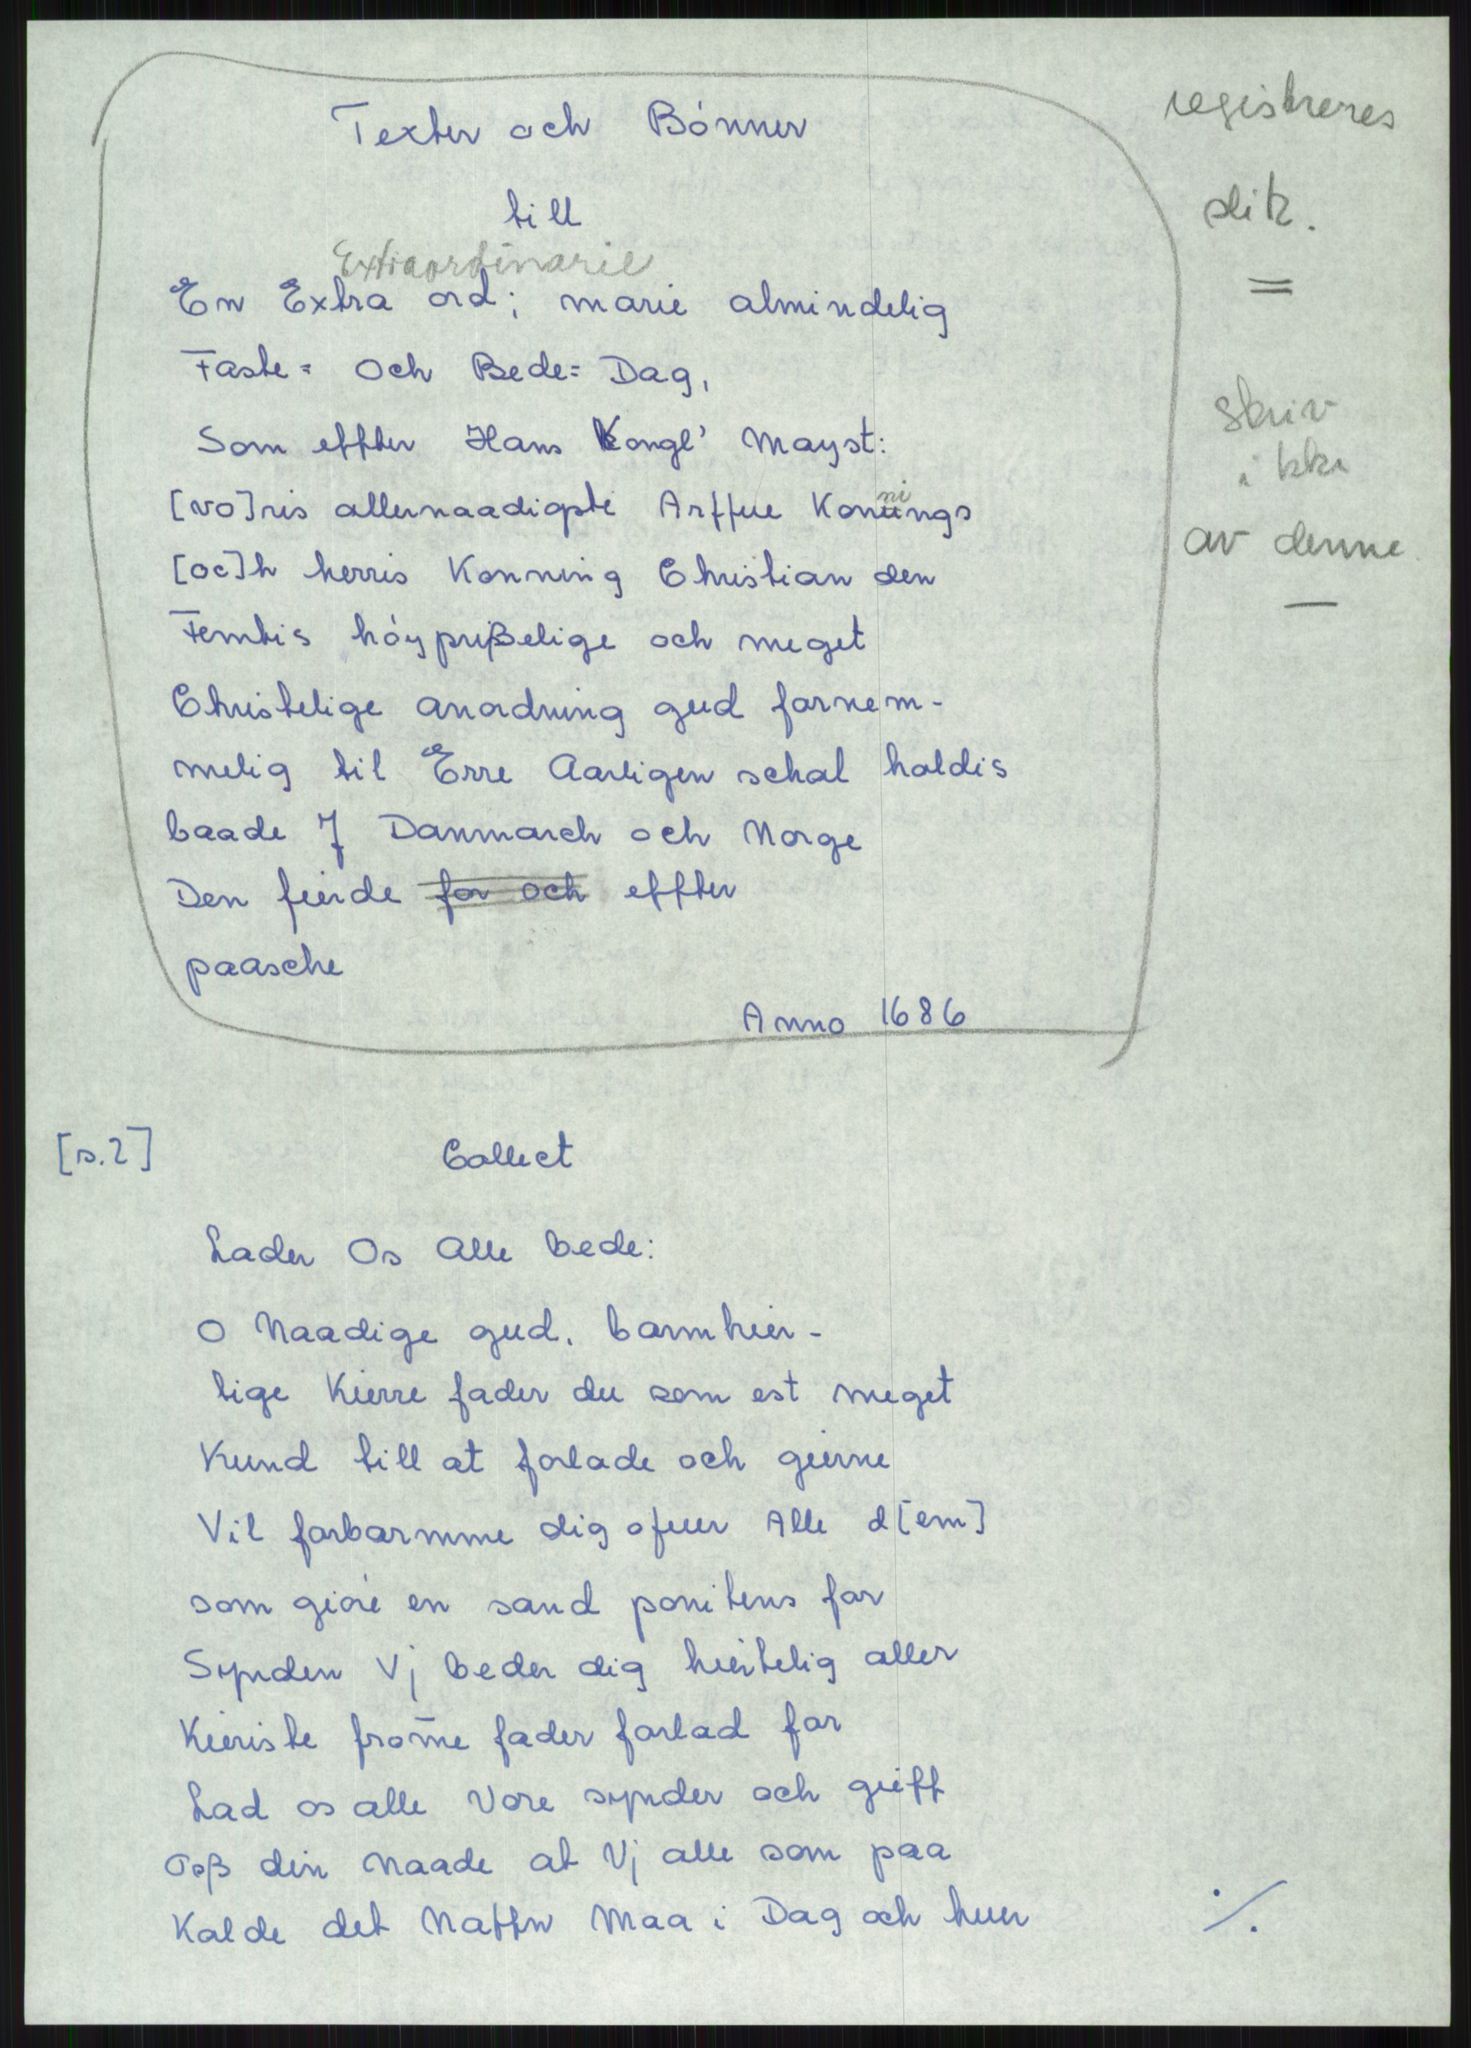 Texter och Bónner
till
Extraordinarie
En Extra ord; marie almindelig
Faste= Och Bede= Dag,
Som effter Hans Kongl' Mayst:
[vo]ris allernaadigste Arffue Konnings
[oc]h herris Konning Christian den
Femtis hóyprißelige och meget
Christelige anordning gud fornem-
melig til Erre Aarligen schal holdis
baade J Danmarch och Norge
Den fierde for och effter
paasche
Anno 1686
registreres
slik.
=
skriv
ikke
av denne.
—
[s.2] Collect
Lader Os Alle bede:
O Naadige gud. barmhier-
tige Kierre fader du som est meget
Kund till at forlade och gierne
Vil forbarmme dig ofuer Alle d[em]
som gióre en sand ponitens for
Synden Vj beder dig hiertelig aller
Kieriste from̄e fader forlad for
Lad os alle Vore synder och gieff
Oß din Naade at Vj alle som paa
Kalde det Naffn Maa i Dag och huer
./.